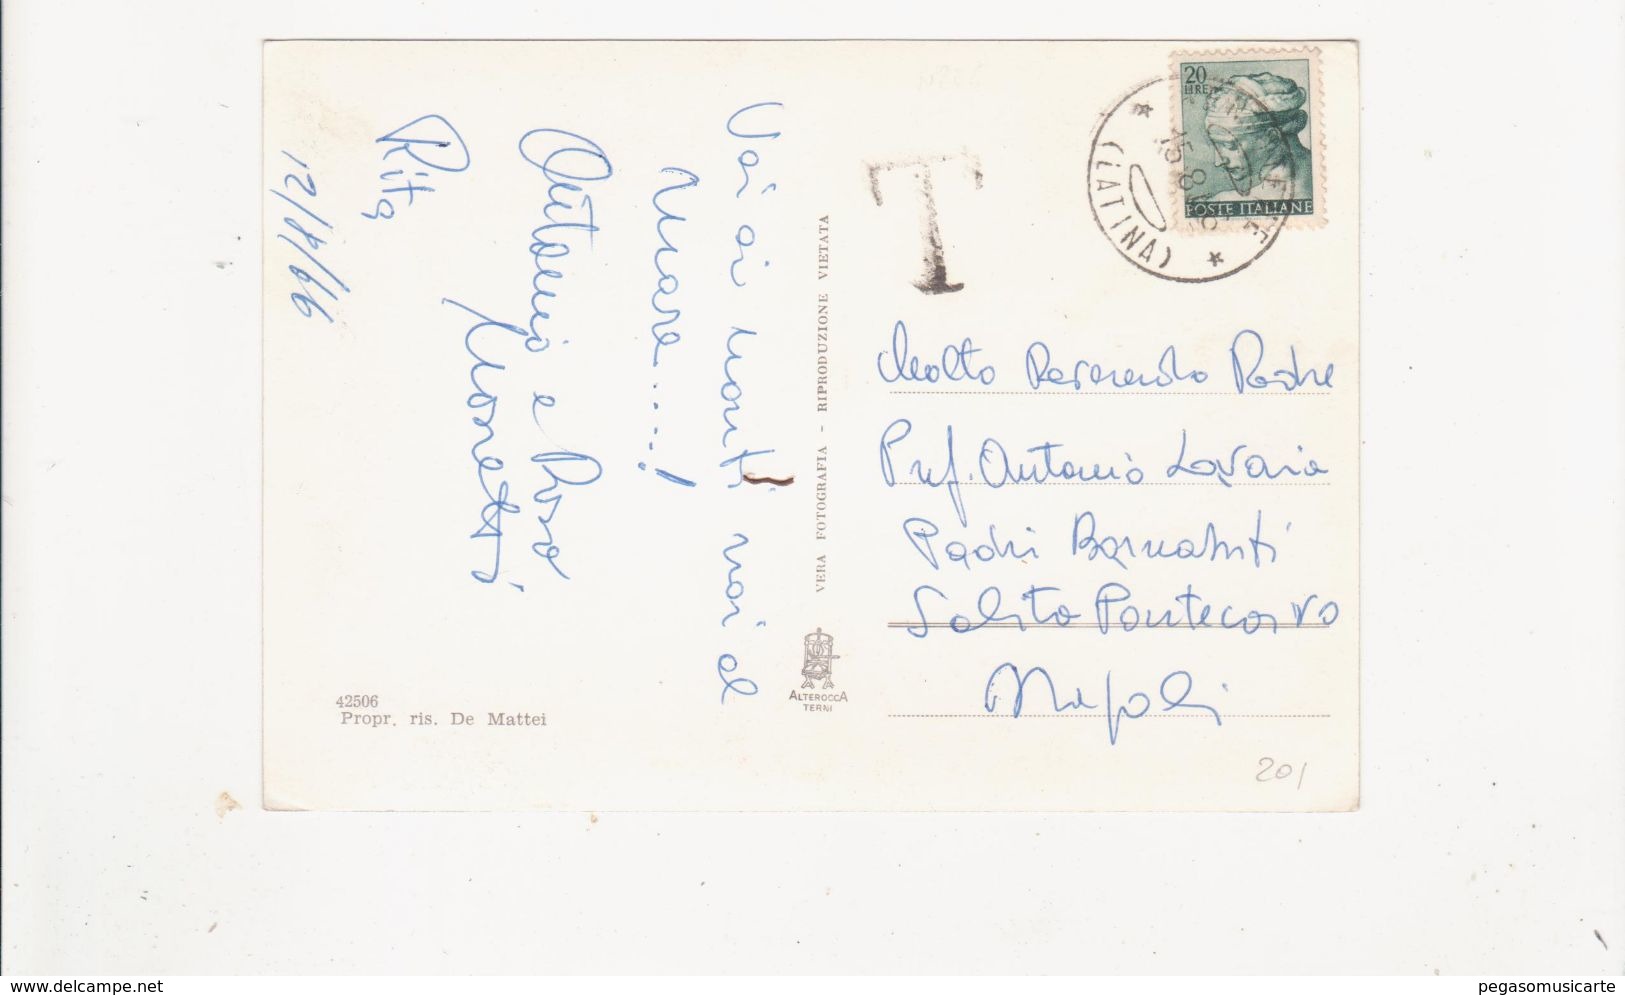 Voi ai monti noi al
mare.....!
Antonio e Rosa
Moretti
Rita
12/8/66
42506
Propr. ris. De Mattei
VERA FOTOGRAFIA - RIPRODUZIONE VIETATA
ALTEROCCA
TERNI
T
20
LIRE
POSTE ITALIANE
15 8
(LATINA)
Molto Reverendo Padre
Prof. Antonio
Padri Barnabiti
Salita Pontecorvo
Napoli
201
delcampe.net
pegasomusicarte